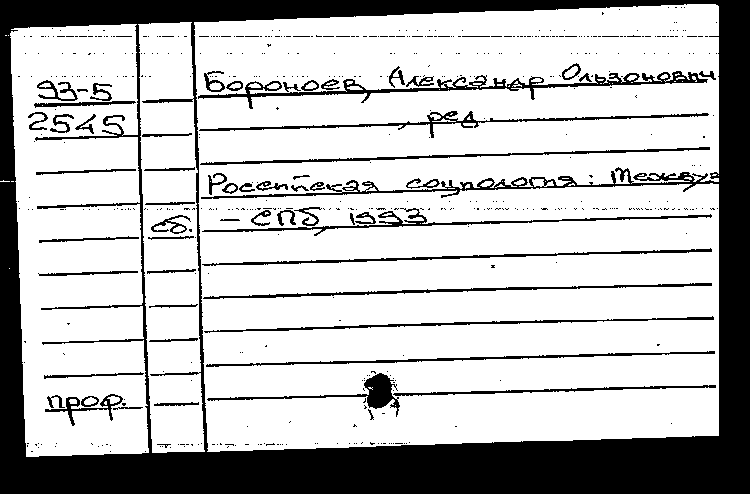 93-5
2545
Бороноев, Александр Ользонович
, ред.
Российская социология: Межвуз
сб. – СПб, 1993
проф.